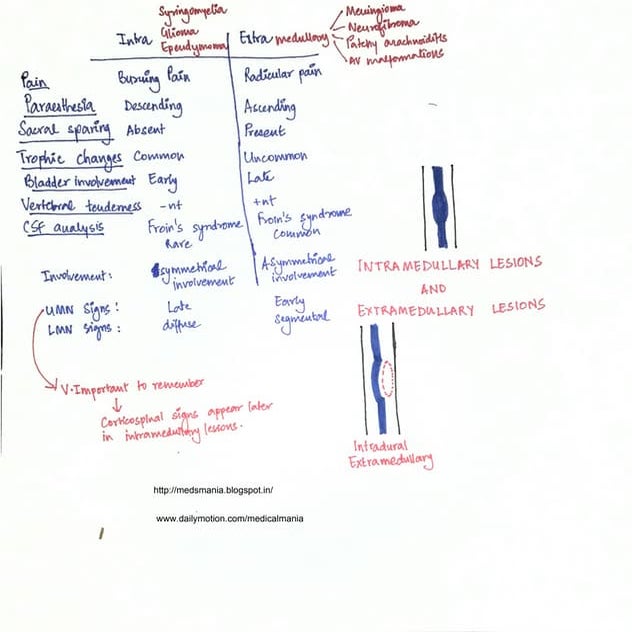 Syringomyelia
Glioma
Ependymoma
Intra
Extra medullary
Meningioma
Neurofibroma
Patchy arachnoiditis
AV malformations
Pain Burning Pain Radicular pain
Paraesthesia Descending Ascending
Sacral sparing Absent Present
Trophic changes Common Uncommon
Bladder involvement Early Late
Vertebral tenderness -nt +nt
CSF analysis Froin's syndrome Rare Froin's syndrome common
Involvement: symmetrical involvement Asymmetrical involvement
UMN signs: Late Early
LMN signs: diffuse segmental
V.Important to remember
Corticospinal signs appear later
in intramedullary lesions.
INTRAMEDULLARY LESIONS
AND
EXTRAMEDULLARY LESIONS
Intradural
Extramedullary
http://medsmania.blogspot.in/
www.dailymotion.com/medicalmania